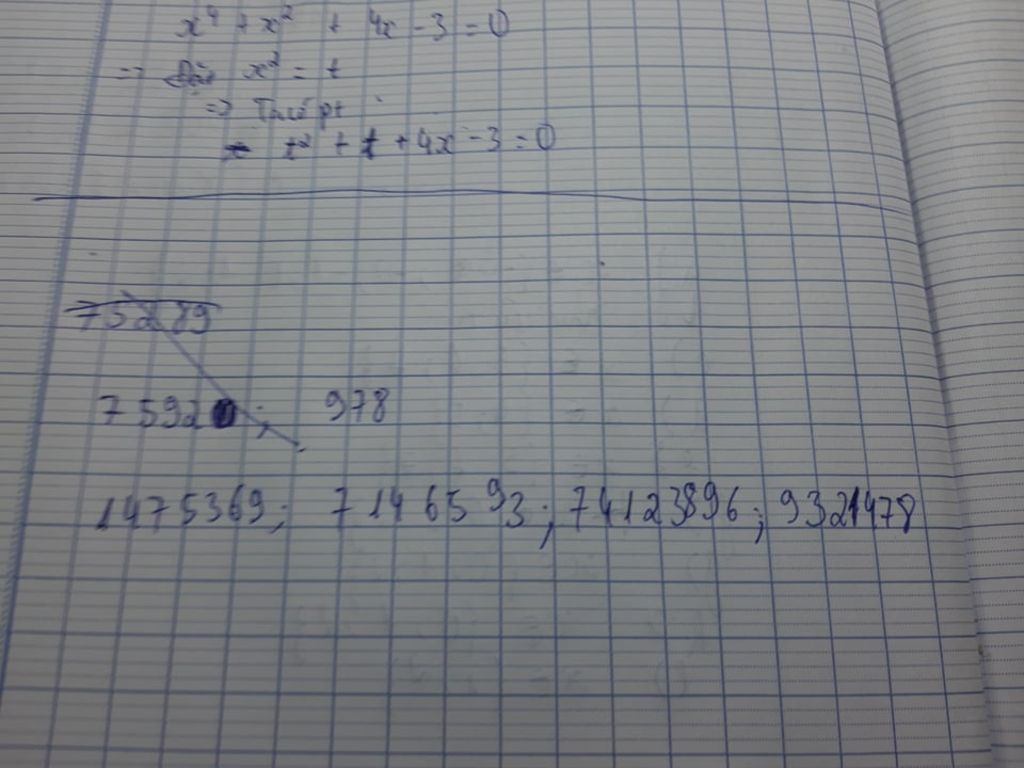 x⁴ + x² + 4x - 3 = 0
=> Đặt x² = t
=> Ta có pt
t² + t + 4x - 3 = 0
75289
7592 ; 978
1475369; 7146593; 74123896; 9321478